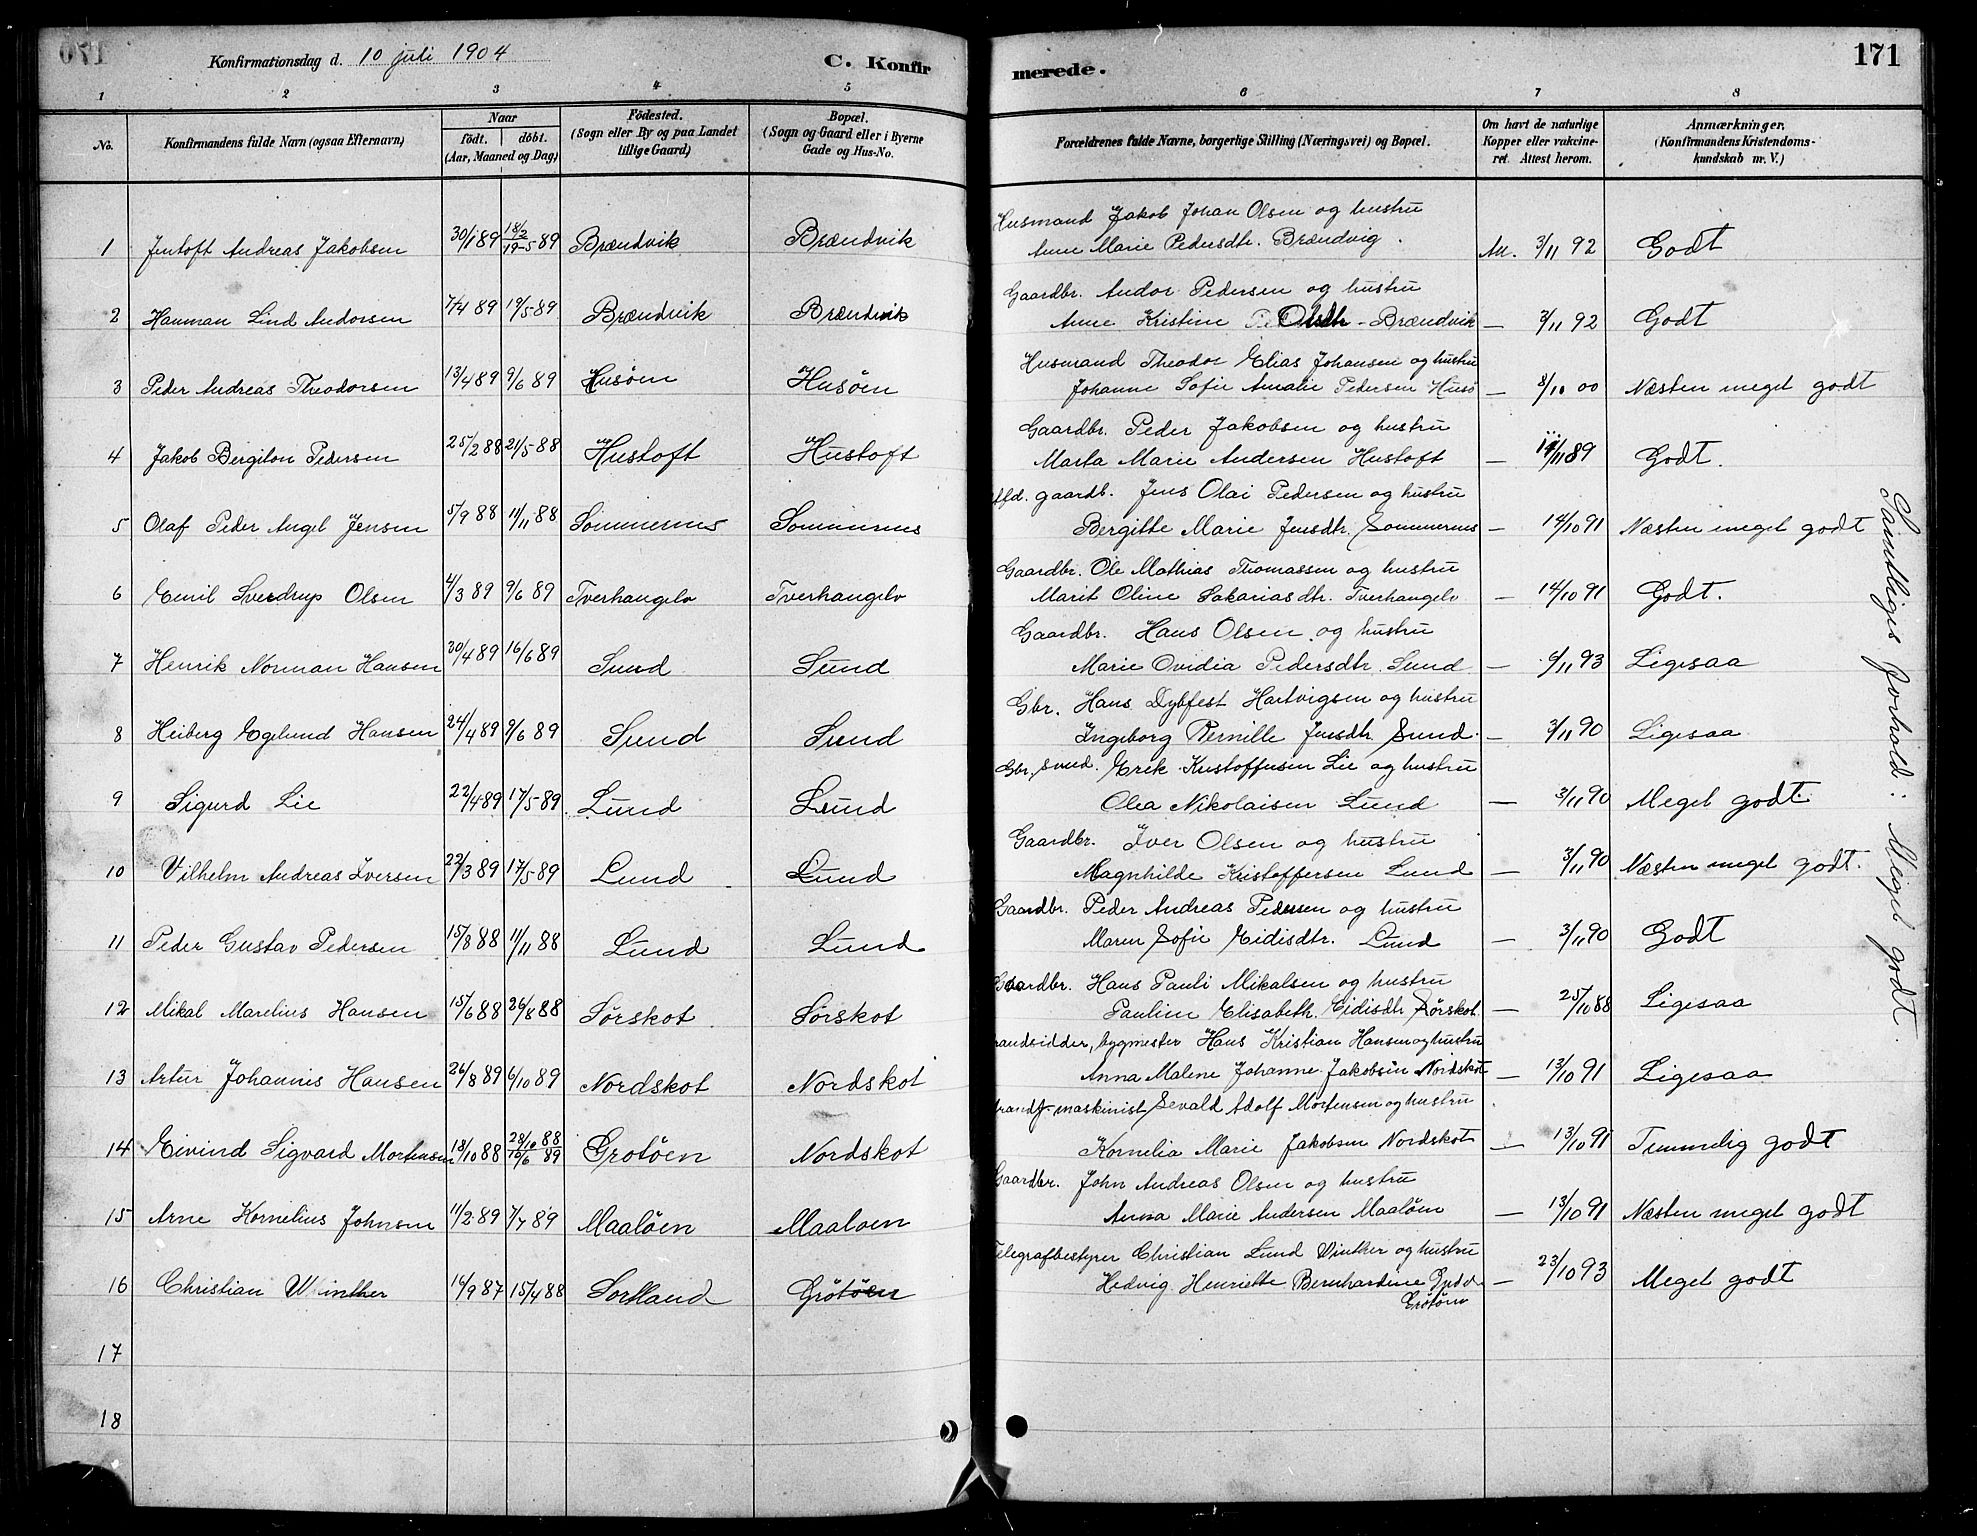 170
Konfirmationsdag d. 10 juli 1904
C. Konfirmerede.
171
1 2 3 4 5 6 7 8
No.
Konfirmandens fulde Navn (ogsaa Efternavn)
Naar
født. døbt.
(Aar, Maaned og Dag)
Fødested.
(Sogn eller By og paa Landet
tillige Gaard)
Bopæl.
(Sogn og Gaard eller i Byerne
Gade og Hus-No.
Forældrenes fulde Navne, borgerlige Stilling (Næringsvei) og Bopæl.
Om havt de naturlige
Kopper eller vakcine-
ret. Attest herom.
Anmærkninger.
(Konfirmandens Kristendoms-
kundskab m. V.)
Husmand Jakob Johan Olsen og hustru
1 Jentoft Andreas Jakobsen 30/1 89 18/2 19-5 89 Brændvik Brændvik Anne Marie Pedersdtr. Brændvig. Au. 3/11 92 Godt
Gaardbr. Andor Pedersen og hustru
2 Hauman Lind Andorsen 7/4 89 19/5 89 Brændvik Brændvik Anne Kristine Olsdtr - Brændvik — 3/11 92 Godt
Husmand Theodor Elias Johansen og hustru
3 Peder Andreas Theodorsen 13/4 89 9/6 89 Husøen Husøen Johanne Sofie Amalie Pedersen Husø — 8/10 00 Næsten meget godt
Gaardbr. Peder Jakobsen og hustru
4 Jakob Bergiton Pedersen 25/2 88 21/5 88 Hustoft Hustoft Marta Marie Andersen Hustoft — 11/11 89 Godt.
gaardb. Jens Olai Pedersen og hustru
5 Olaf Peder Angel Jensen 5/9 88 11/11 88 Sommernes Sommernes Bergitte Marie Jensdtr. Sommernes — 14/10 91 Næsten meget godt
Gaardbr. Ole Mathias Thomassen og hustru
6 Emil Sverdrup Olsen 4/3 89 9/6 89 Tverhangelv Tverhangelv Marit Oline Sakariasdtr. Tverhangelv — 14/10 91 Godt.
Gaardbr. Hans Olsen og hustru
7 Henrik Norman Hansen 30/4 89 16/6 89 Sund Sund Marie Ovidia Pedersdtr. Sund — 9/11 93 Ligesaa
Gbr. Hans Dybfest Hartvigsen og hustru
8 Heiberg Egelund Hansen 24/4 89 9/6 89 Sund Sund Ingeborg Pernille Jensdtr. Sund. — 3/11 90 Ligesaa
Gbr, smed. Erik Kristoffersen Lie og hustru
9 Sigurd Lie 22/4 89 17/5 89 Lund Lund Olea Nikolaisen Lund — 3/11 90 Meget godt.
Gaardbr. Iver Olsen og hustru
10 Vilhelm Andreas Iversen 22/3 89 17/5 89 Lund Lund Magnhilde Kristoffersen Lund — 3/11 90 Næsten meget godt.
Gaardbr. Peder Andreas Pedersen og hustru
11 Peder Gustav Pedersen 15/8 88 11/11 88 Lund Lund Maren Sofie Eidisdtr. Lund — 3/11 90 Godt
Gaardbr. Hans Pauli Mikalsen og hustru
12 Mikal Marelius Hansen 15/6 88 26/8 88 Sørskot Sørskot Pauline Elisabeth Eidisdtr Sørskot. — 25/10 88 Ligesaa
randsidder, bygmester Hans Kristian Hansen og hustru
13 Artur Johannes Hansen 26/8 89 6/10 89 Nordskot Nordskot Anna Malene Johanne Jakobsen Nordskot — 13/10 91 Ligesaa
maskinist Sevald Adolf Mortensen og hustru
14 Eivind Sigvard Mortensen 18/10 88 28/10 88 16/6 89 Grøtøen Nordskot Kornelia Marie Jakobsen Nordskot — 13/10 91 Temmelig godt
Gaardbr. John Andreas Olsen og hustru
15 Arne Kornelius Johnsen 11/2 89 7/7 89 Maaløen Maaløen Anna Marie Andersen Maaløen — 13/10 91 Næsten meget godt
Telegrafbestyrer Christian Lund Vinther og hustru
16 Christian Winther 16/9 87 15/4 88 Sortland Grøtøen Hedvig Henriette Bernhardine — 23/10 93 Meget godt
Grøtøen
17
18
Samtliges forhold: Meget godt.